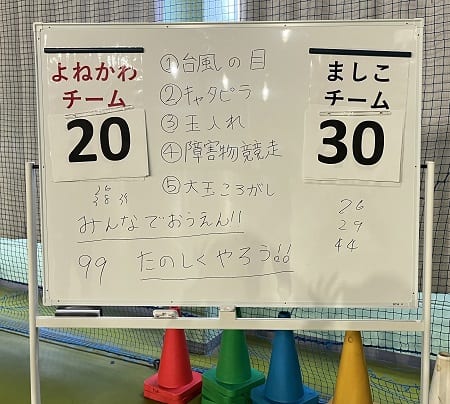 よねかわ
チーム
20
①台風の目
②キャタピラ
③玉入れ
④障害物競走
⑤大玉ころがし
みんなでおうえん!!
99 たのしくやろう!!
ましこ
チーム
30
26
29
44